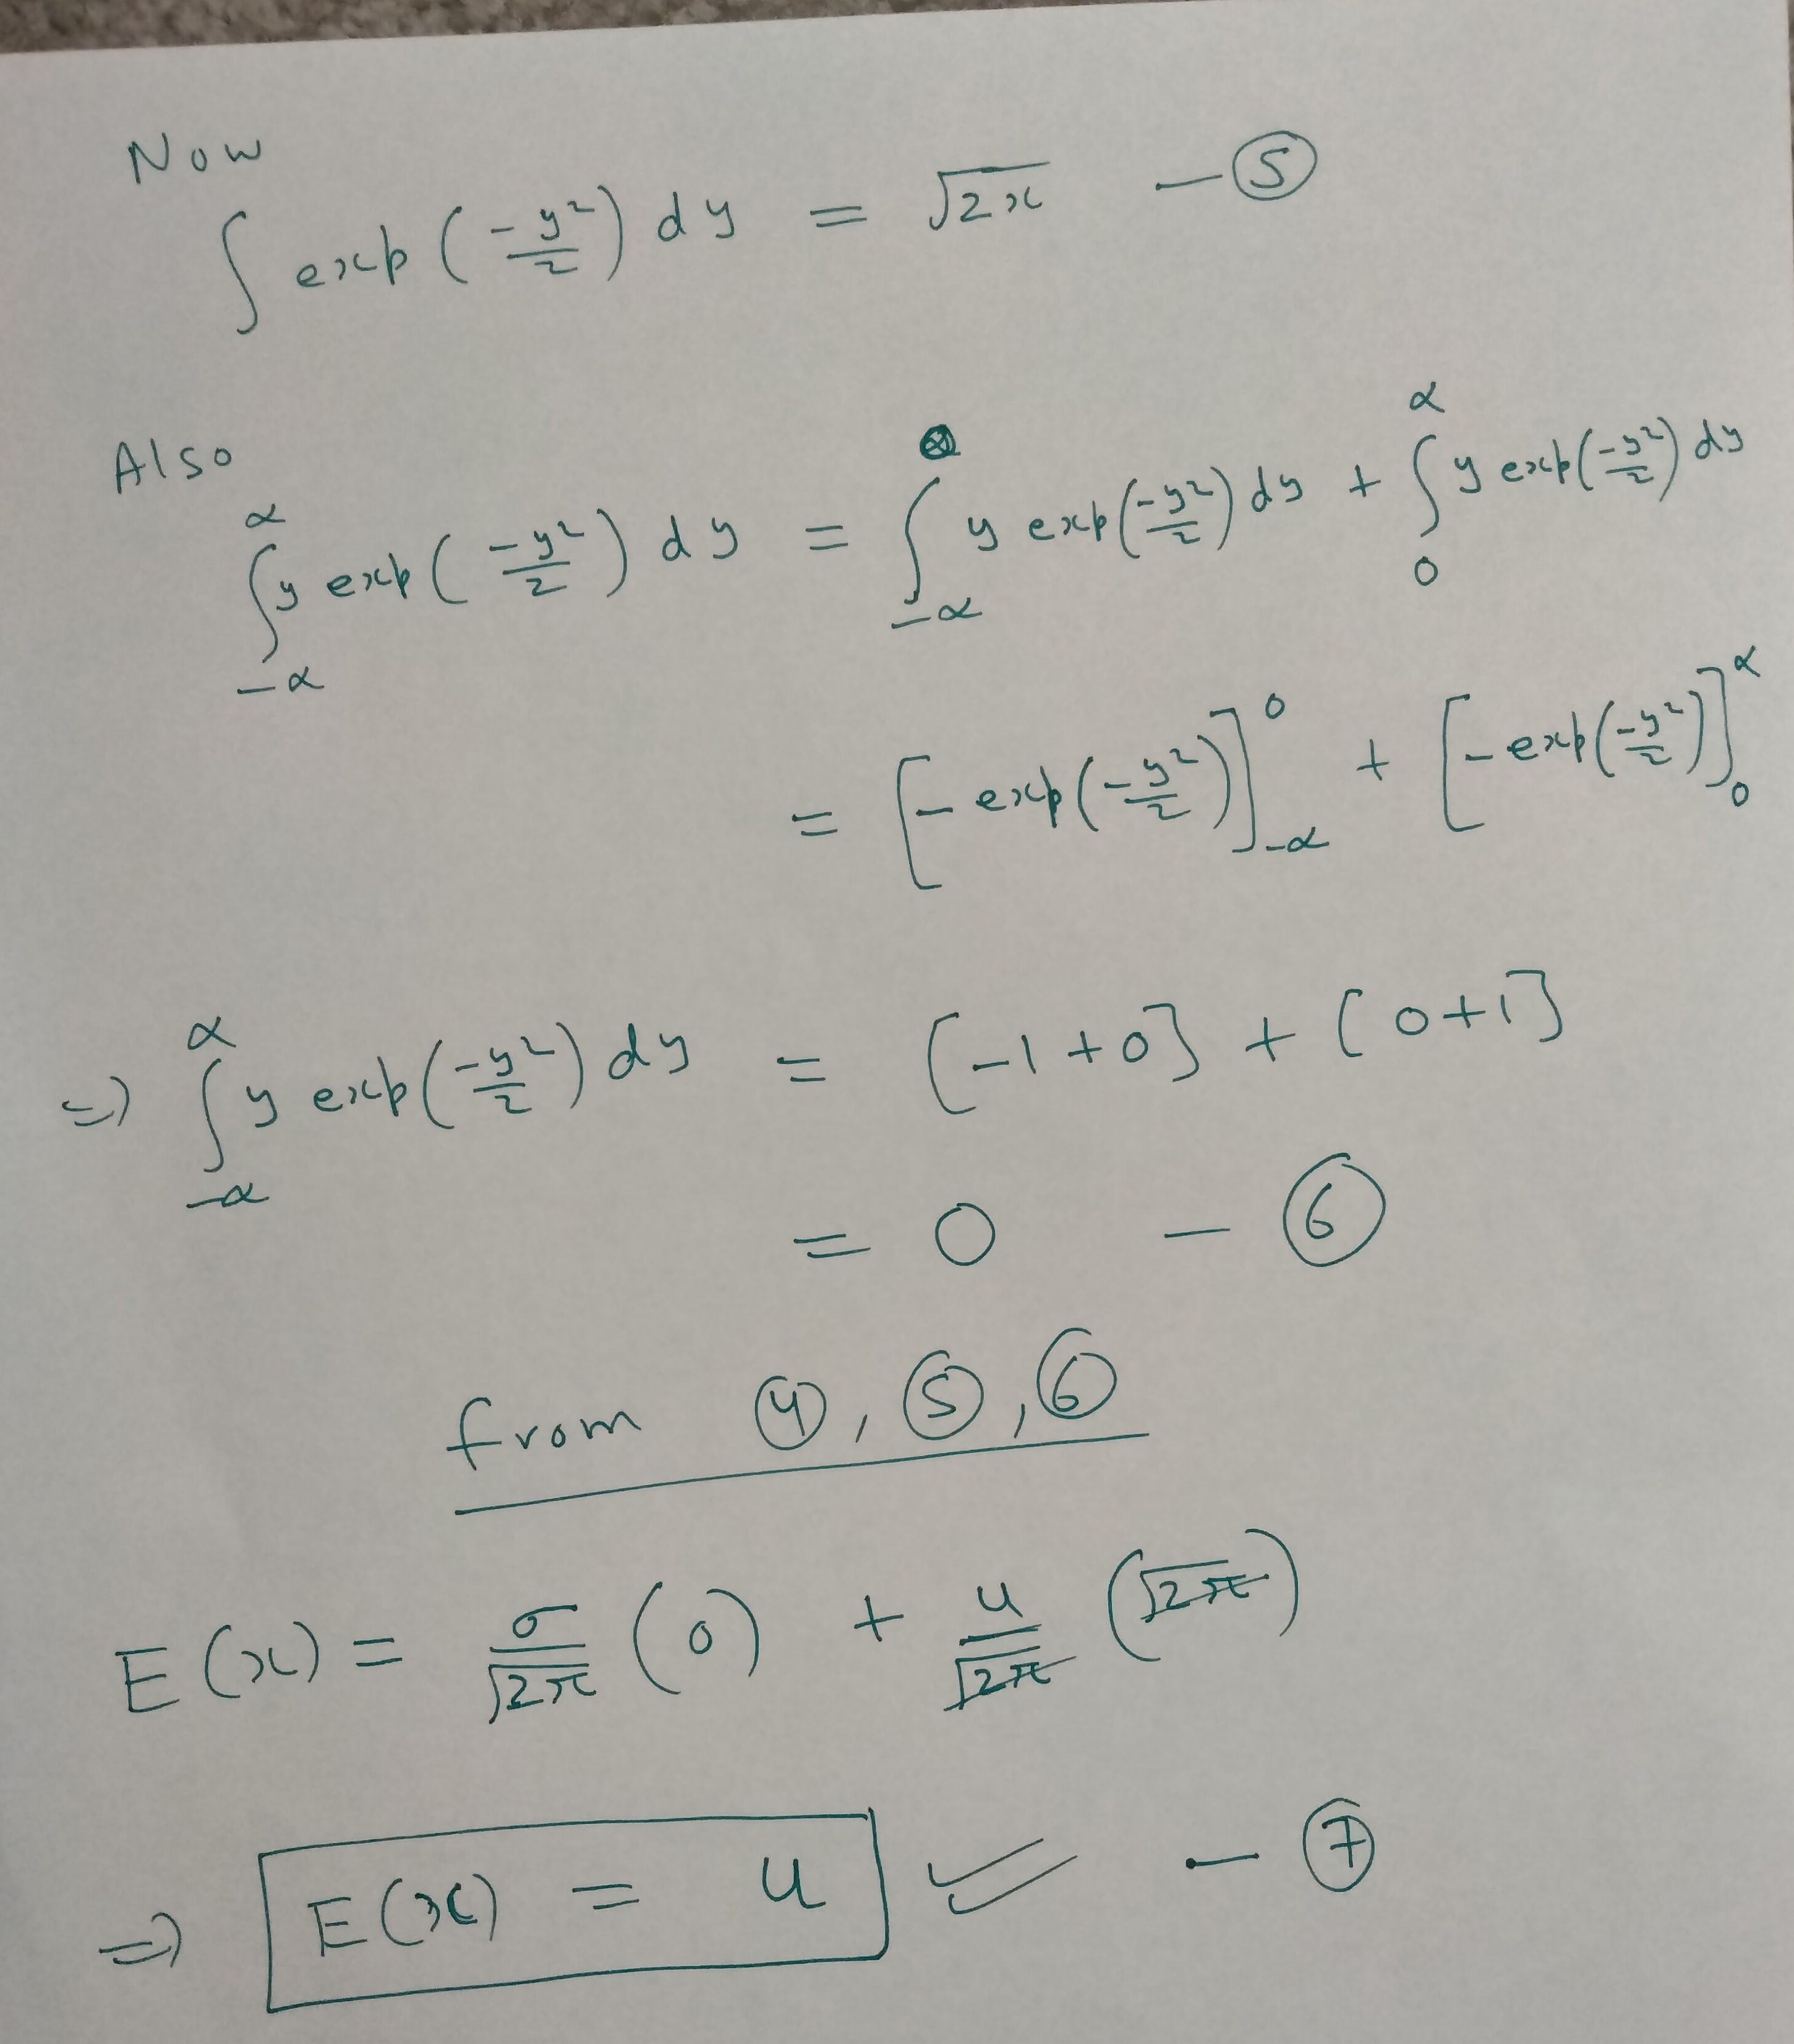 Now
∫ exp(-y²/2) dy = √2x — ⑤
Also
∫_{-α}^{α} y exp(-y²/2) dy = ∫_{-α} y exp(-y²/2) dy + ∫_{0}^{α} y exp(-y²/2) dy
= [-exp(-y²/2)]_{-α}^{0} + [-exp(-y²/2)]_{0}^{α}
⇒ ∫_{-α}^{α} y exp(-y²/2) dy = [-1+0] + [0+1]
= 0 — ⑥
from ④, ⑤, ⑥
E(x) = σ/√2π (0) + u/√2π (√2π)
⇒ E(x) = u — ⑦